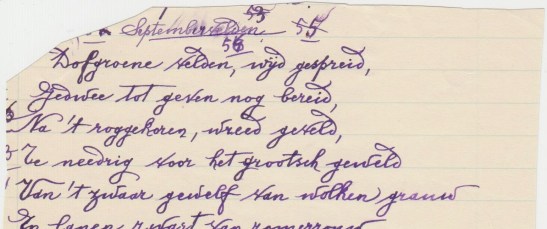 Septembervelden. 53 56 55
Dofgroene velden, wijd gespreid,
Gedwee tot geven nog bereid,
Na 't roggekoren, wreed geveld,
Te needrig voor het grootsch geweld
Van 't zwaar gewelf van wolken grauw
In lanen zwart van zomerrouw